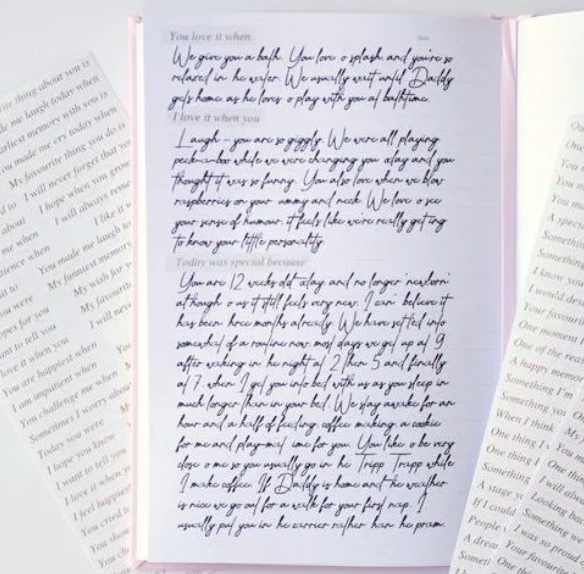 rite thing about you is
de me laugh today when
earliest memory with you is
you made me cry today when
My favourite thing you do is
I will never forget that yo
I hope when you grow
about I will always reme
me when I like it w
You made me laugh to
My funniest memory
My wish for y
you were My favourit
opes for you I will nev
ant to tell you
love it when you
You are happiest when
I am impatient when
You challenge me when
Sometimes I worry abou
Today you were
I hope you know
I want to tell you
I love it when
I feel happies
You cried
You show
You ch
You love it when
We give you a bath. You love o splash and you're so
relaxed in he water. We usually wait until Daddy
gets home as he loves o play with you at bathtime.
I love it when you
Laugh - you are so giggly. We were all playing
peek-a-boo while we were changing you oday and you
thought it was so funny. You also love when we blow
raspberries on your ummy and neck. We love o see
your sense of humour, it feels like we're really get ing
to know your little personality.
Today was special because
You are 12 weeks old oday and no longer 'newborn'
al hough o us it still feels very new. I can' believe it
has been hree months already. We have set led into
somewhat of a routine now, most days we get up at 9
after waking in he night at 2 then 5 and finally
at 7, when I get you into bed with us as you sleep in
much longer than in your bed. We stay awake for an
hour and a half of feeding, coffee making, a cookie
for me and play-mat ime for you. You like o be very
close o me so you usually go in he Tripp Trapp while
I make coffee. If Daddy is home and he weather
is nice we go out for a walk for your first nap. I
usually put you in he carrier rather han he pram.
Go
One
You
You m
A speci
Somethi
Somethin
I know you
I would des
Your favour
One moment I
One of the re
A happy mem
Something I'm
Something you
When I think
One thing I w
One thing
Something
A stage
If I could
People
A drea
Somet
You m
One thi
I will alw
Looking ba
Something we
I was so proud
Your favourite
One thing